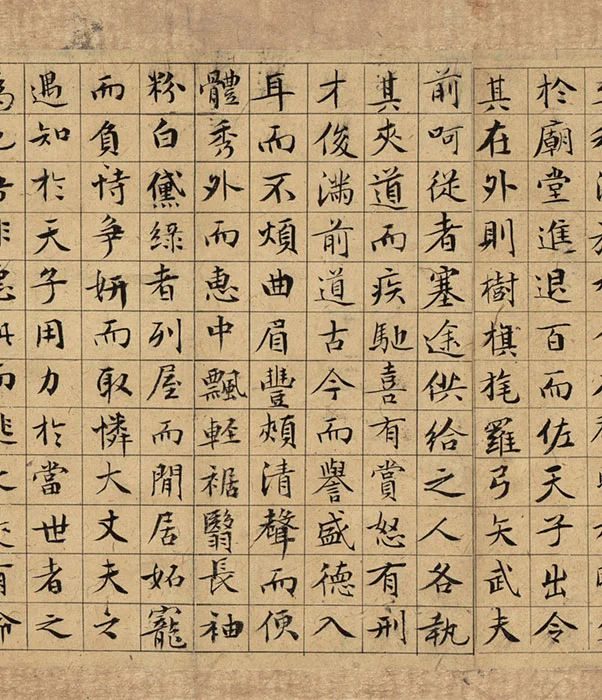 於廟堂進退百而佐天子出令
其在外則樹旗旄羅弓矢武夫
前呵從者塞途供給之人各執
其夾道而疾馳喜有賞怒有刑
才俊滿前道古今而譽盛德入
耳而不煩曲眉豐頰清聲而便
體秀外而惠中飄輕裾翳長袖
粉白黛綠者列屋而閒居妬寵
而負恃爭妍而取憐大丈夫之
遇知於天子用力於當世者之